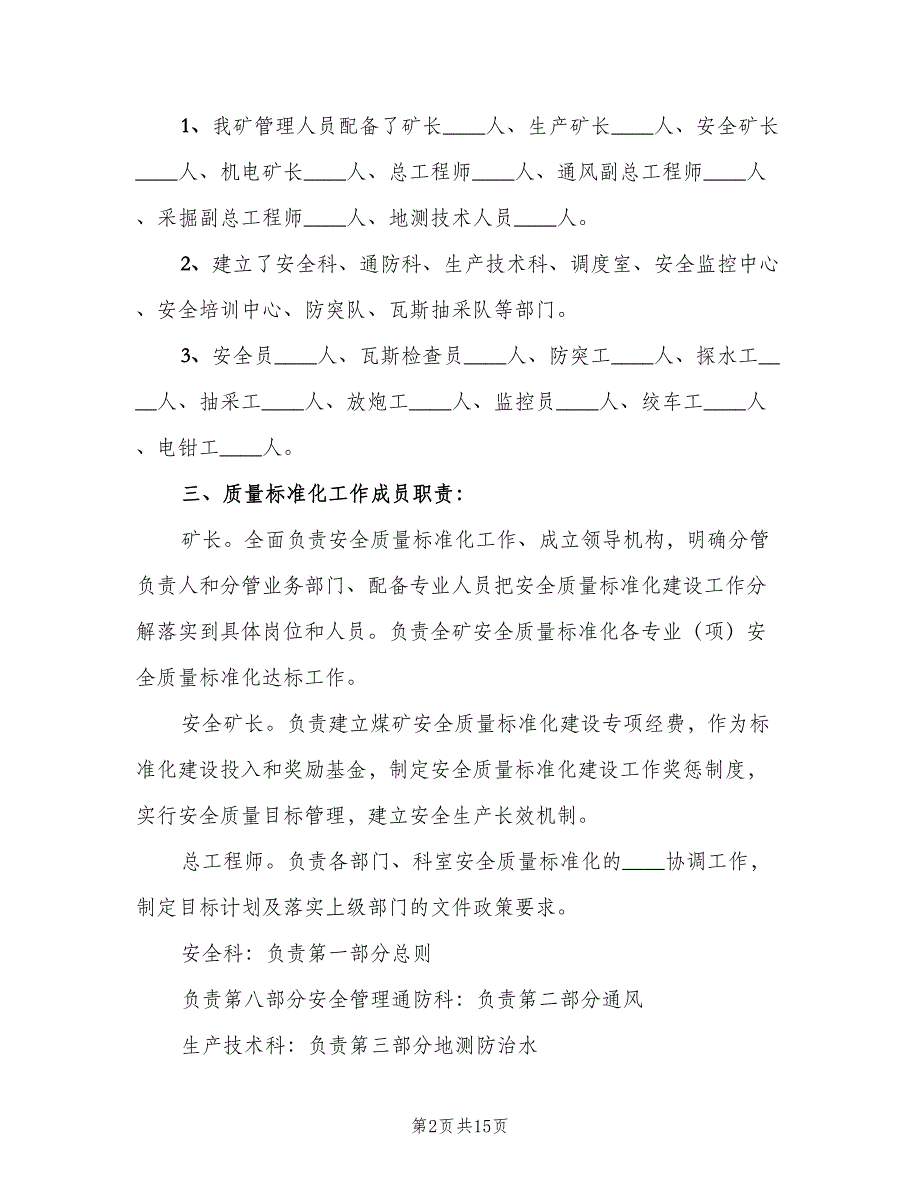 1、我矿管理人员配备了矿长____人、生产矿长____人、安全矿长
____人、机电矿长____人、总工程师____人、通风副总工程师____人
、采掘副总工程师____人、地测技术人员____人。
2、建立了安全科、通防科、生产技术科、调度室、安全监控中心
、安全培训中心、防突队、瓦斯抽采队等部门。
3、安全员____人、瓦斯检查员____人、防突工____人、探水工__
__人、抽采工____人、放炮工____人、监控员____人、绞车工____人
、电钳工____人。
三、质量标准化工作成员职责：
矿长。全面负责安全质量标准化工作、成立领导机构，明确分管
负责人和分管业务部门、配备专业人员把安全质量标准化建设工作分
解落实到具体岗位和人员。负责全矿安全质量标准化各专业（项）安
全质量标准化达标工作。
安全矿长。负责建立煤矿安全质量标准化建设专项经费，作为标
准化建设投入和奖励基金，制定安全质量标准化建设工作奖惩制度，
实行安全质量目标管理，建立安全生产长效机制。
总工程师。负责各部门、科室安全质量标准化的____协调工作，
制定目标计划及落实上级部门的文件政策要求。
安全科：负责第一部分总则
负责第八部分安全管理通防科：负责第二部分通风
生产技术科：负责第三部分地测防治水
第2页共15页